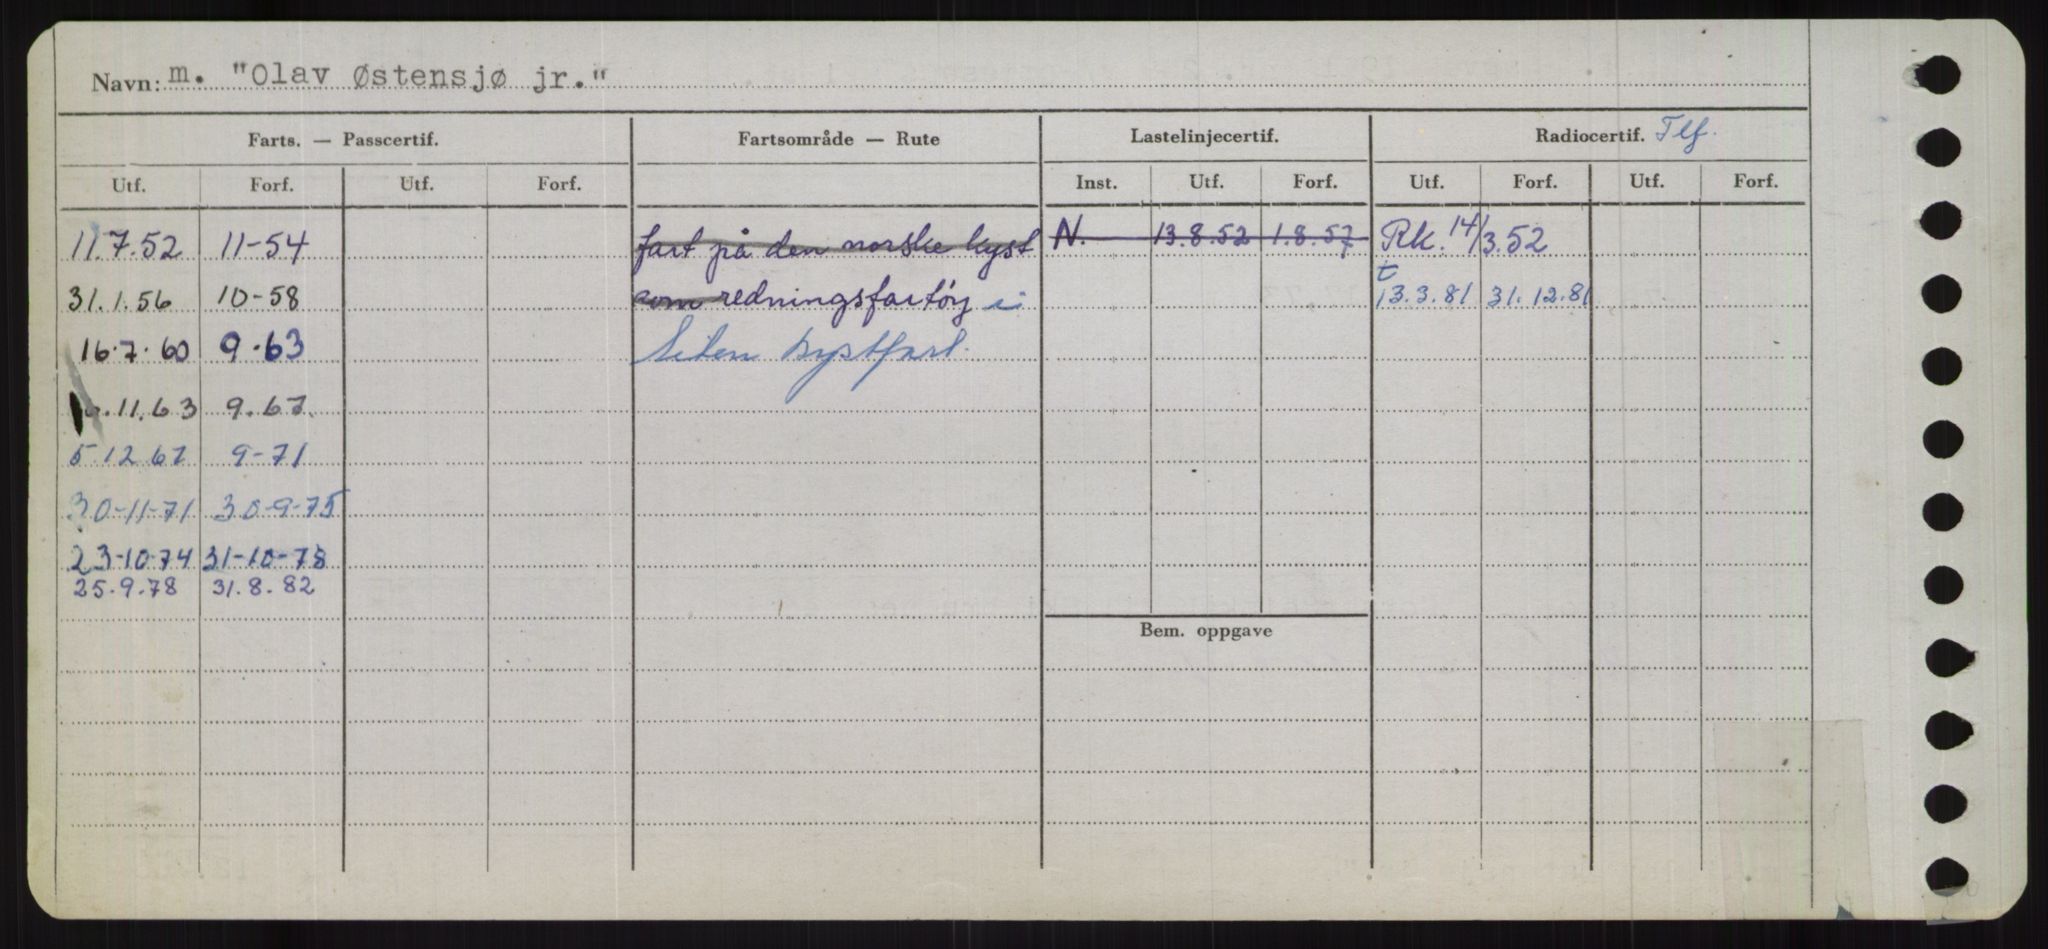 Navn: m. "Olav Østensjø jr."
Farts. — Passcertif. Fartsområde — Rute Lastelinjecertif. Radiocertif. Tlf.
Utf. Forf. Utf. Forf. Inst. Utf. Forf. Utf. Forf. Utf. Forf.
11.7.52 11-54 fart på den norske kyst N. 13.8.52 1.8.57 Rk. 14/3.52
31.1.56 10-58 som redningsfartöy i t 13.3.81 31.12.81
16.7.60 9.63 liten kystfart.
.11.63 9.67.
5 12 67 9-71
30-11-71 30-9-75
23-10-74 31-10-78
25.9.78 31.8.82
Bem. oppgave